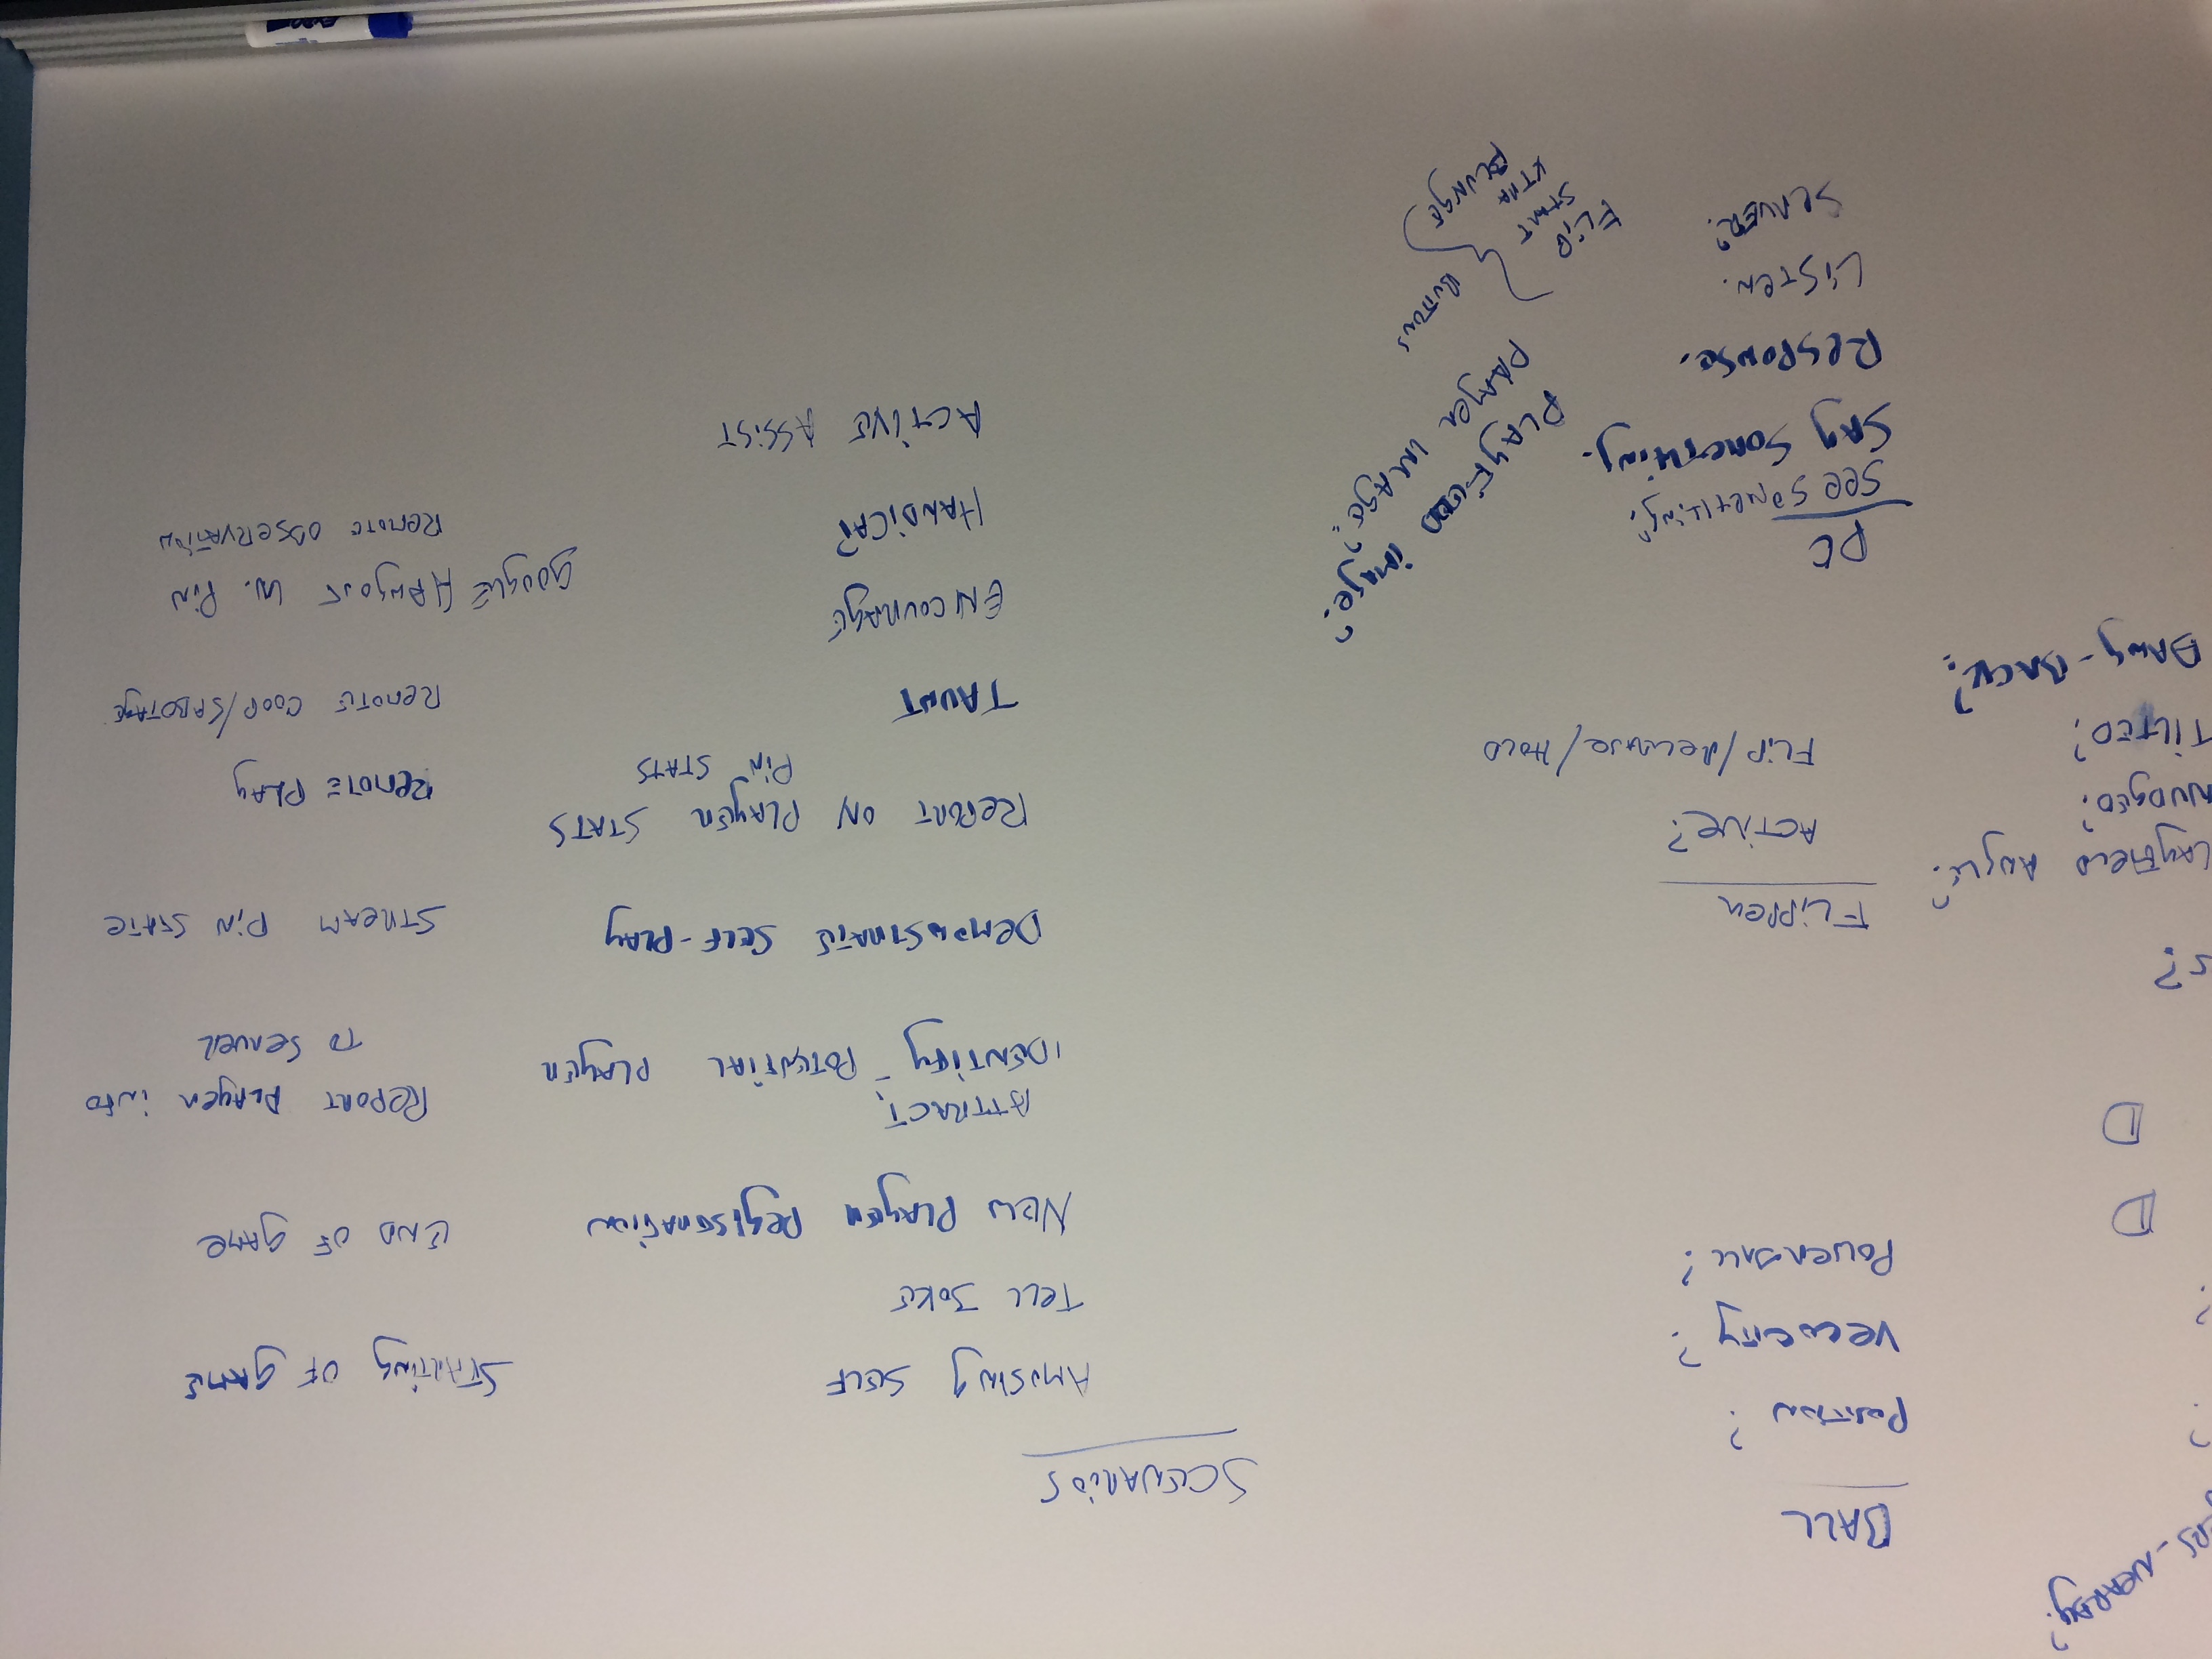 NEARBY?
?
?
D
D
S?
LAYFIELD ANGLE?
NUDGED?
TILTED?
BANG-BACK?
BALL
POSITION?
VELOCITY?
POWERBALL?
FLIPPER
ACTIVE?
FLIP/RELEASE/HOLD
PC
SEE SOMETHING?
SAY SOMETHING.
RESPONSE.
LISTEN.
SERVER?
PLAYFIELD IMAGE?
PLAYER IMAGE?
FLIP
START
XTRA
PLUNGE
BUTTONS
SCENARIOS
AMUSING SELF
TELL JOKE
NEW PLAYER REGISTRATION
ATTRACT
IDENTIFY POTENTIAL PLAYER
DEMONSTRATE SELF-PLAY
REPORT ON PLAYER STATS
PIN STATS
TAUNT
ENCOURAGE
HANDICAP
ACTIVE ASSIST
STARTING OF GAME
END OF GAME
REPORT PLAYER INFO
TO SERVER
STREAM PIN STATE
REMOTE PLAY
REMOTE COOP/SABOTAGE
GOOGLE HANGOUT W. PIN
REMOTE OBSERVATION
EXPO